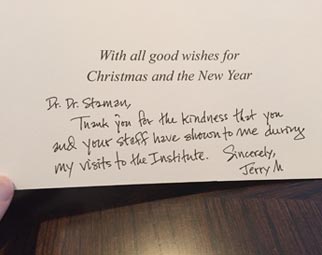 With all good wishes for
Christmas and the New Year
Dr. Dr. Staman,
Thank you for the kindness that you
and your staff have shown to me during
my visits to the Institute. Sincerely,
Jerry M